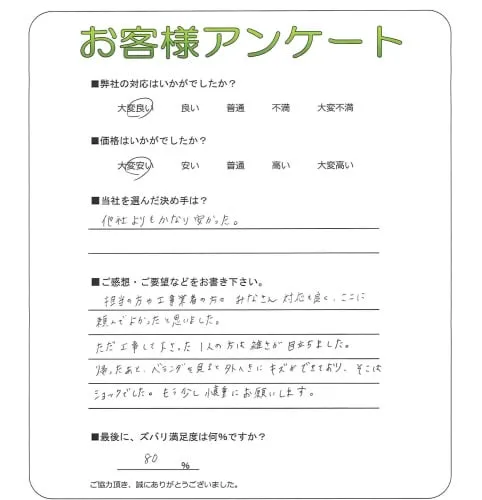 お客様アンケート
■弊社の対応はいかがでしたか？
大変良い 良い 普通 不満 大変不満
■価格はいかがでしたか？
大変安い 安い 普通 高い 大変高い
■当社を選んだ決め手は？
他社よりもかなり安かった。
■ご感想・ご要望などをお書き下さい。
担当の方や工事業者の方の みなさん 対応も良く、ここに
頼んでよかったと思いました。
ただ工事して下さった 1人の方は 雑さが 目立ちました。
帰ったあと、ベランダを見ると外へきに キズができており、そこは
ショックでした。もう少し 慎重にお願いします。
■最後に、ズバリ満足度は何%ですか？
80 %
ご協力頂き、誠にありがとうございました。